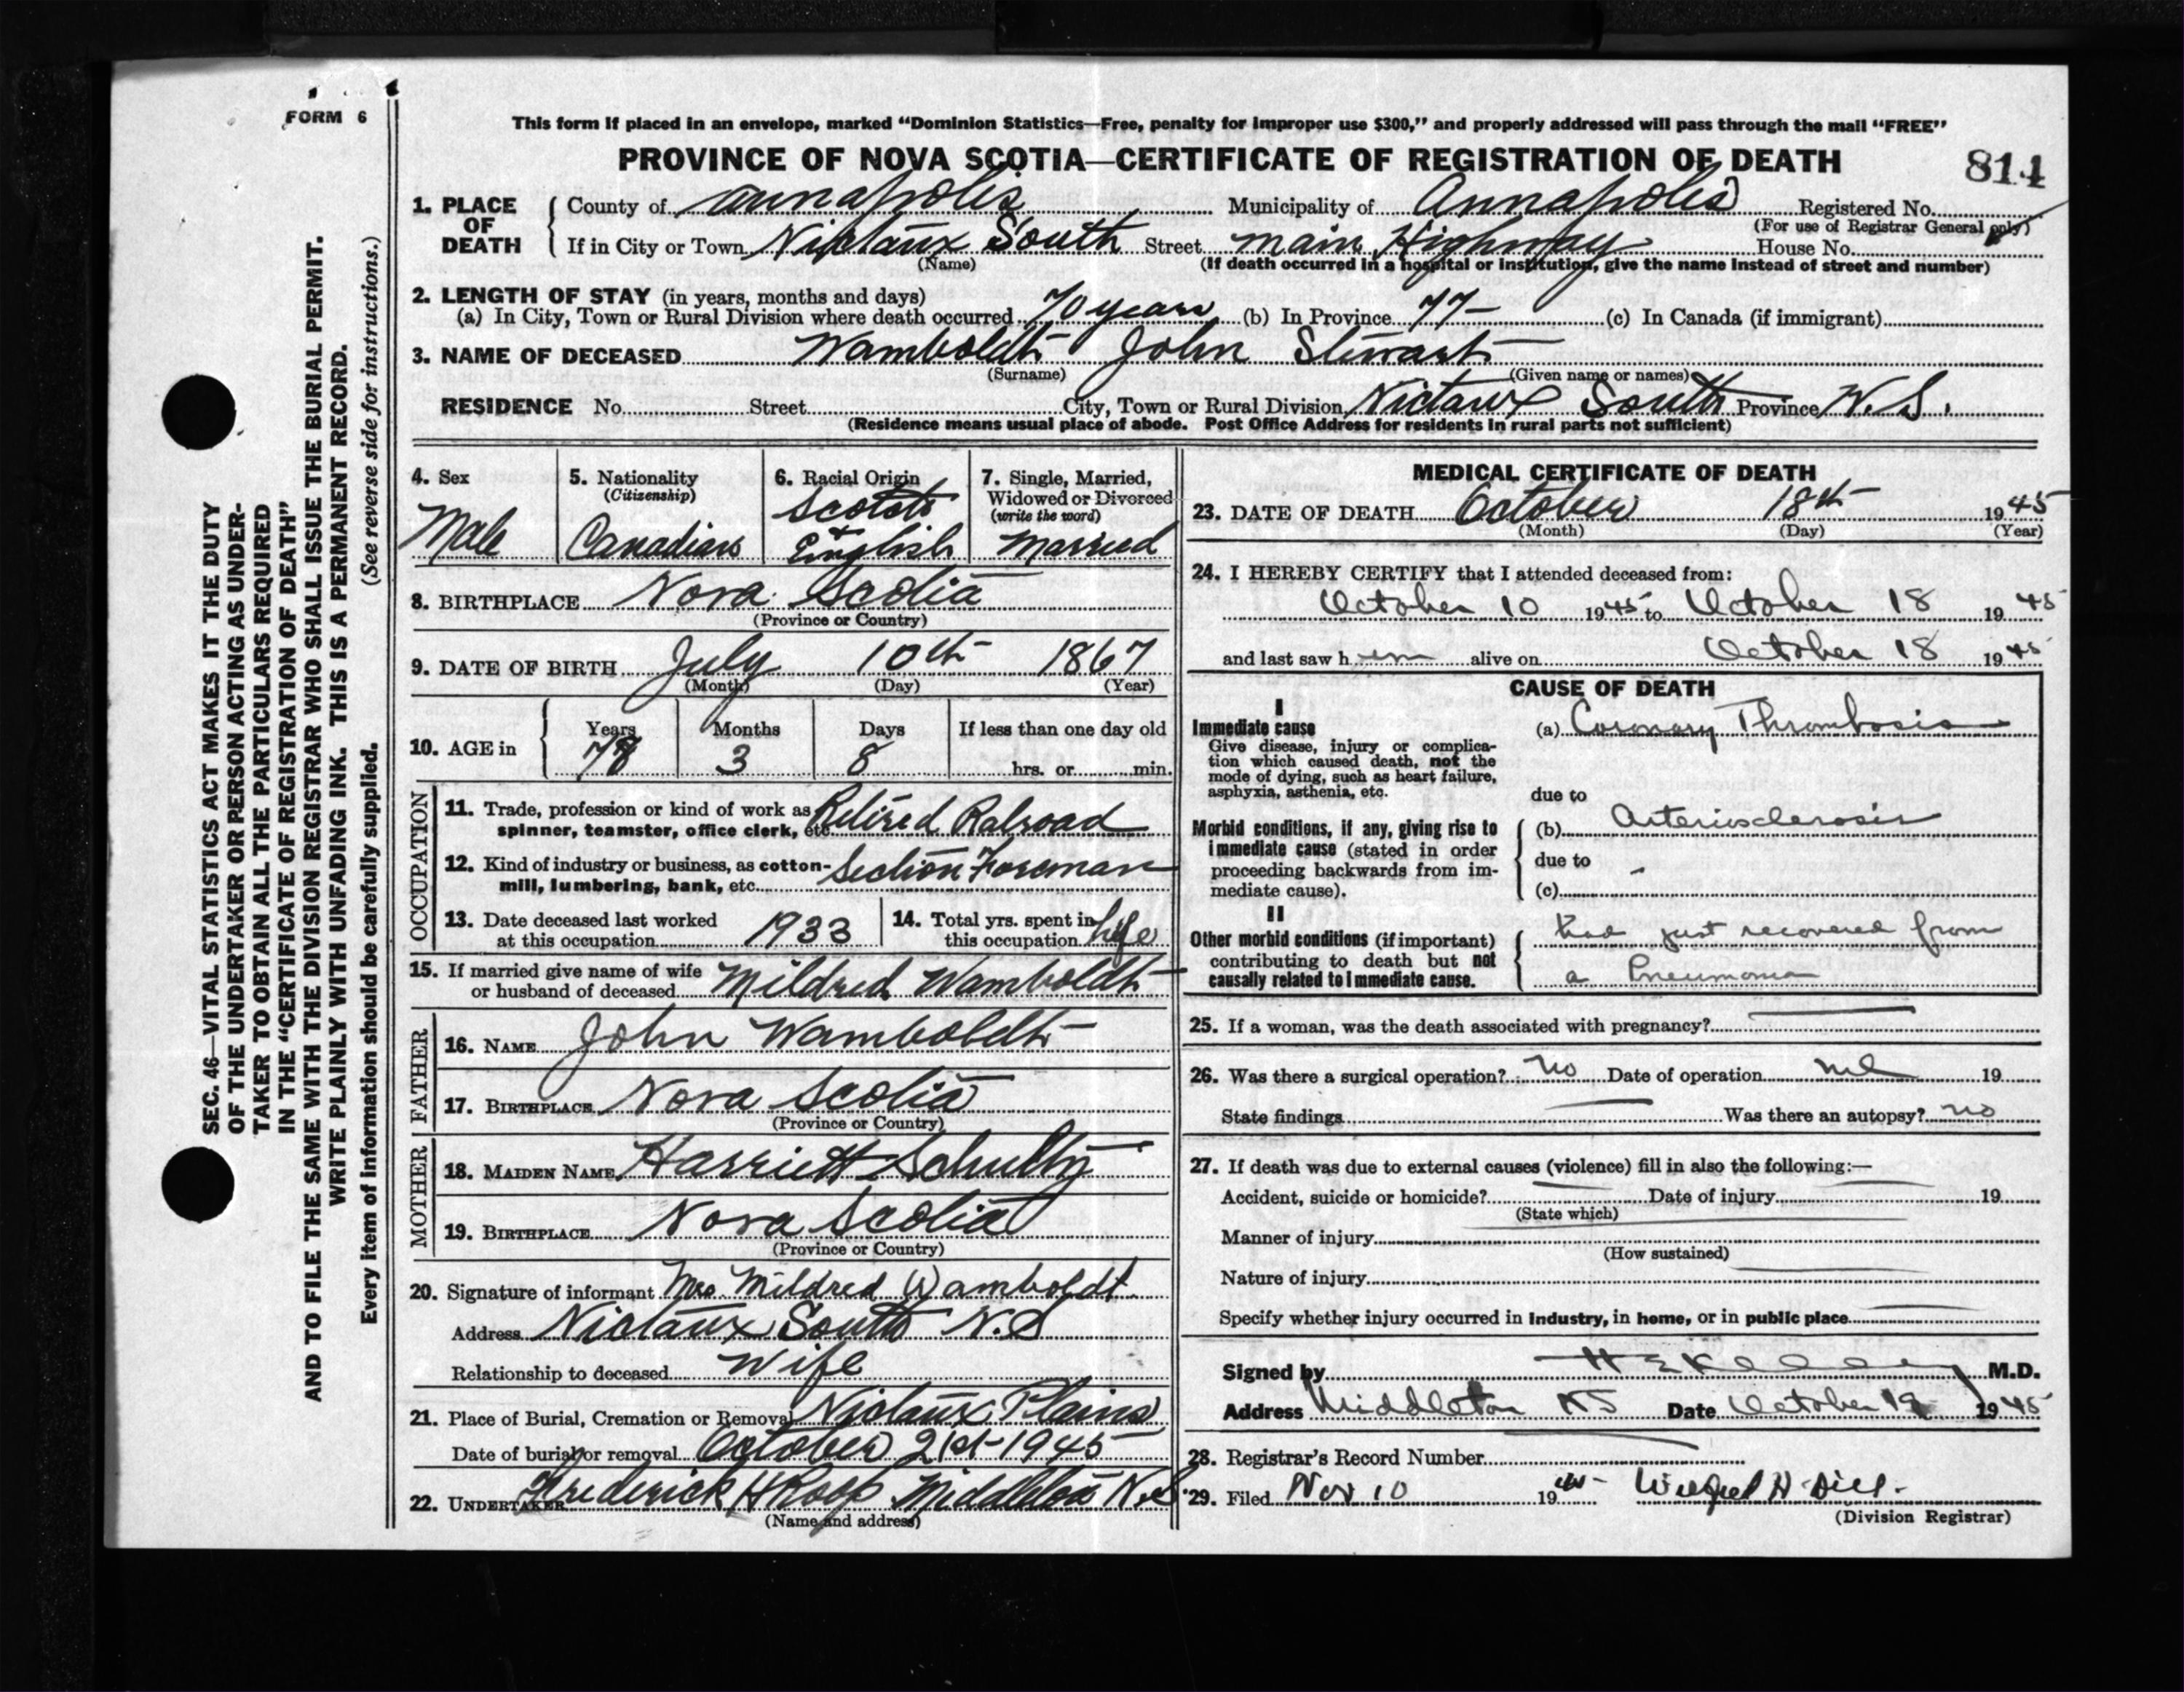 FORM 6
This form if placed in an envelope, marked “Dominion Statistics—Free, penalty for improper use $300,” and properly addressed will pass through the mail “FREE”
PROVINCE OF NOVA SCOTIA—CERTIFICATE OF REGISTRATION OF DEATH
814
1. PLACE OF DEATH
County of Annapolis Municipality of Annapolis Registered No.
(For use of Registrar General only)
If in City or Town Nictaux South Street Main Highway House No.
(Name) (If death occurred in a hospital or institution, give the name instead of street and number)
2. LENGTH OF STAY (in years, months and days)
(a) In City, Town or Rural Division where death occurred 70 years (b) In Province 77 (c) In Canada (if immigrant)
3. NAME OF DECEASED Wamboldt John Stewart
(Surname) (Given name or names)
RESIDENCE No. Street City, Town or Rural Division Nictaux South Province N.S.
(Residence means usual place of abode. Post Office Address for residents in rural parts not sufficient)
4. Sex
Male
5. Nationality
(Citizenship)
Canadian
6. Racial Origin
Scotch
+
English
7. Single, Married,
Widowed or Divorced
(write the word)
Married
8. BIRTHPLACE Nova Scotia
(Province or Country)
9. DATE OF BIRTH July 10th 1867
(Month) (Day) (Year)
10. AGE in
Years Months Days If less than one day old
78 3 8 hrs. or min.
OCCUPATION
11. Trade, profession or kind of work as Retired Ralroad
spinner, teamster, office clerk, etc.
12. Kind of industry or business, as cotton- Section Foreman
mill, lumbering, bank, etc.
13. Date deceased last worked
at this occupation 1933
14. Total yrs. spent in
this occupation life
15. If married give name of wife
or husband of deceased Mildred Wamboldt
FATHER
16. NAME John Wamboldt
17. BIRTHPLACE Nova Scotia
(Province or Country)
MOTHER
18. MAIDEN NAME Harriett Schultz
19. BIRTHPLACE Nova Scotia
(Province or Country)
20. Signature of informant Mrs. Mildred Wamboldt.
Address Nictaux South N.S
Relationship to deceased Wife
21. Place of Burial, Cremation or Removal Nictaux Plains
Date of burial or removal October 21st 1945
22. UNDERTAKER Frederick H Roop Middleton N.S
(Name and address)
MEDICAL CERTIFICATE OF DEATH
23. DATE OF DEATH October 18th 1945
(Month) (Day) (Year)
24. I HEREBY CERTIFY that I attended deceased from:
October 10 1945 to October 18 1945
and last saw him alive on October 18 1945
CAUSE OF DEATH
I
Immediate cause
Give disease, injury or complica-
tion which caused death, not the
mode of dying, such as heart failure,
asphyxia, asthenia, etc.
(a) Coronary Thrombosis
due to
Morbid conditions, if any, giving rise to
immediate cause (stated in order
proceeding backwards from im-
mediate cause).
(b) Arteriosclerosis
due to
(c)
II
Other morbid conditions (if important)
contributing to death but not
causally related to immediate cause.
had just recovered from
a Pneumonia
25. If a woman, was the death associated with pregnancy?
26. Was there a surgical operation? no Date of operation nil 19
State findings Was there an autopsy? no
27. If death was due to external causes (violence) fill in also the following:—
Accident, suicide or homicide? Date of injury 19
(State which)
Manner of injury
(How sustained)
Nature of injury
Specify whether injury occurred in industry, in home, or in public place
Signed by H E Kelley M.D.
Address Middleton NS Date October 19 1945
28. Registrar's Record Number
29. Filed Nov 10 1945
(Division Registrar)
SEC. 46—VITAL STATISTICS ACT MAKES IT THE DUTY
OF THE UNDERTAKER OR PERSON ACTING AS UNDER-
TAKER TO OBTAIN ALL THE PARTICULARS REQUIRED
IN THE “CERTIFICATE OF REGISTRATION OF DEATH”
AND TO FILE THE SAME WITH THE DIVISION REGISTRAR WHO SHALL ISSUE THE BURIAL PERMIT.
WRITE PLAINLY WITH UNFADING INK. THIS IS A PERMANENT RECORD.
Every item of information should be carefully supplied. (See reverse side for instructions.)